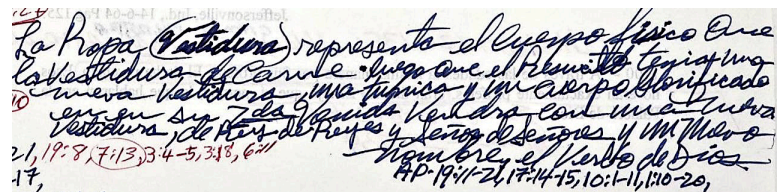 Jeffersonville, Ind., 14-6-64
La Ropa (Vestidura) representa el Cuerpo físico Que
la Vestidura de Carne. luego que el Resucitó tenia una
nueva Vestidura, una tunica y un cuerpo Glorificado
10
en su 2da Venida Vendra con una nueva
Vestidura, de Rey de Reyes y Señor de Señores y un Nuevo
Nombre, el Verbo de Dios
21, 19:8, 7:13, 3:4-5, 3:18, 6:11
17, AP-19:11-21, 17:14-15, 10:1-11, 1:10-20,